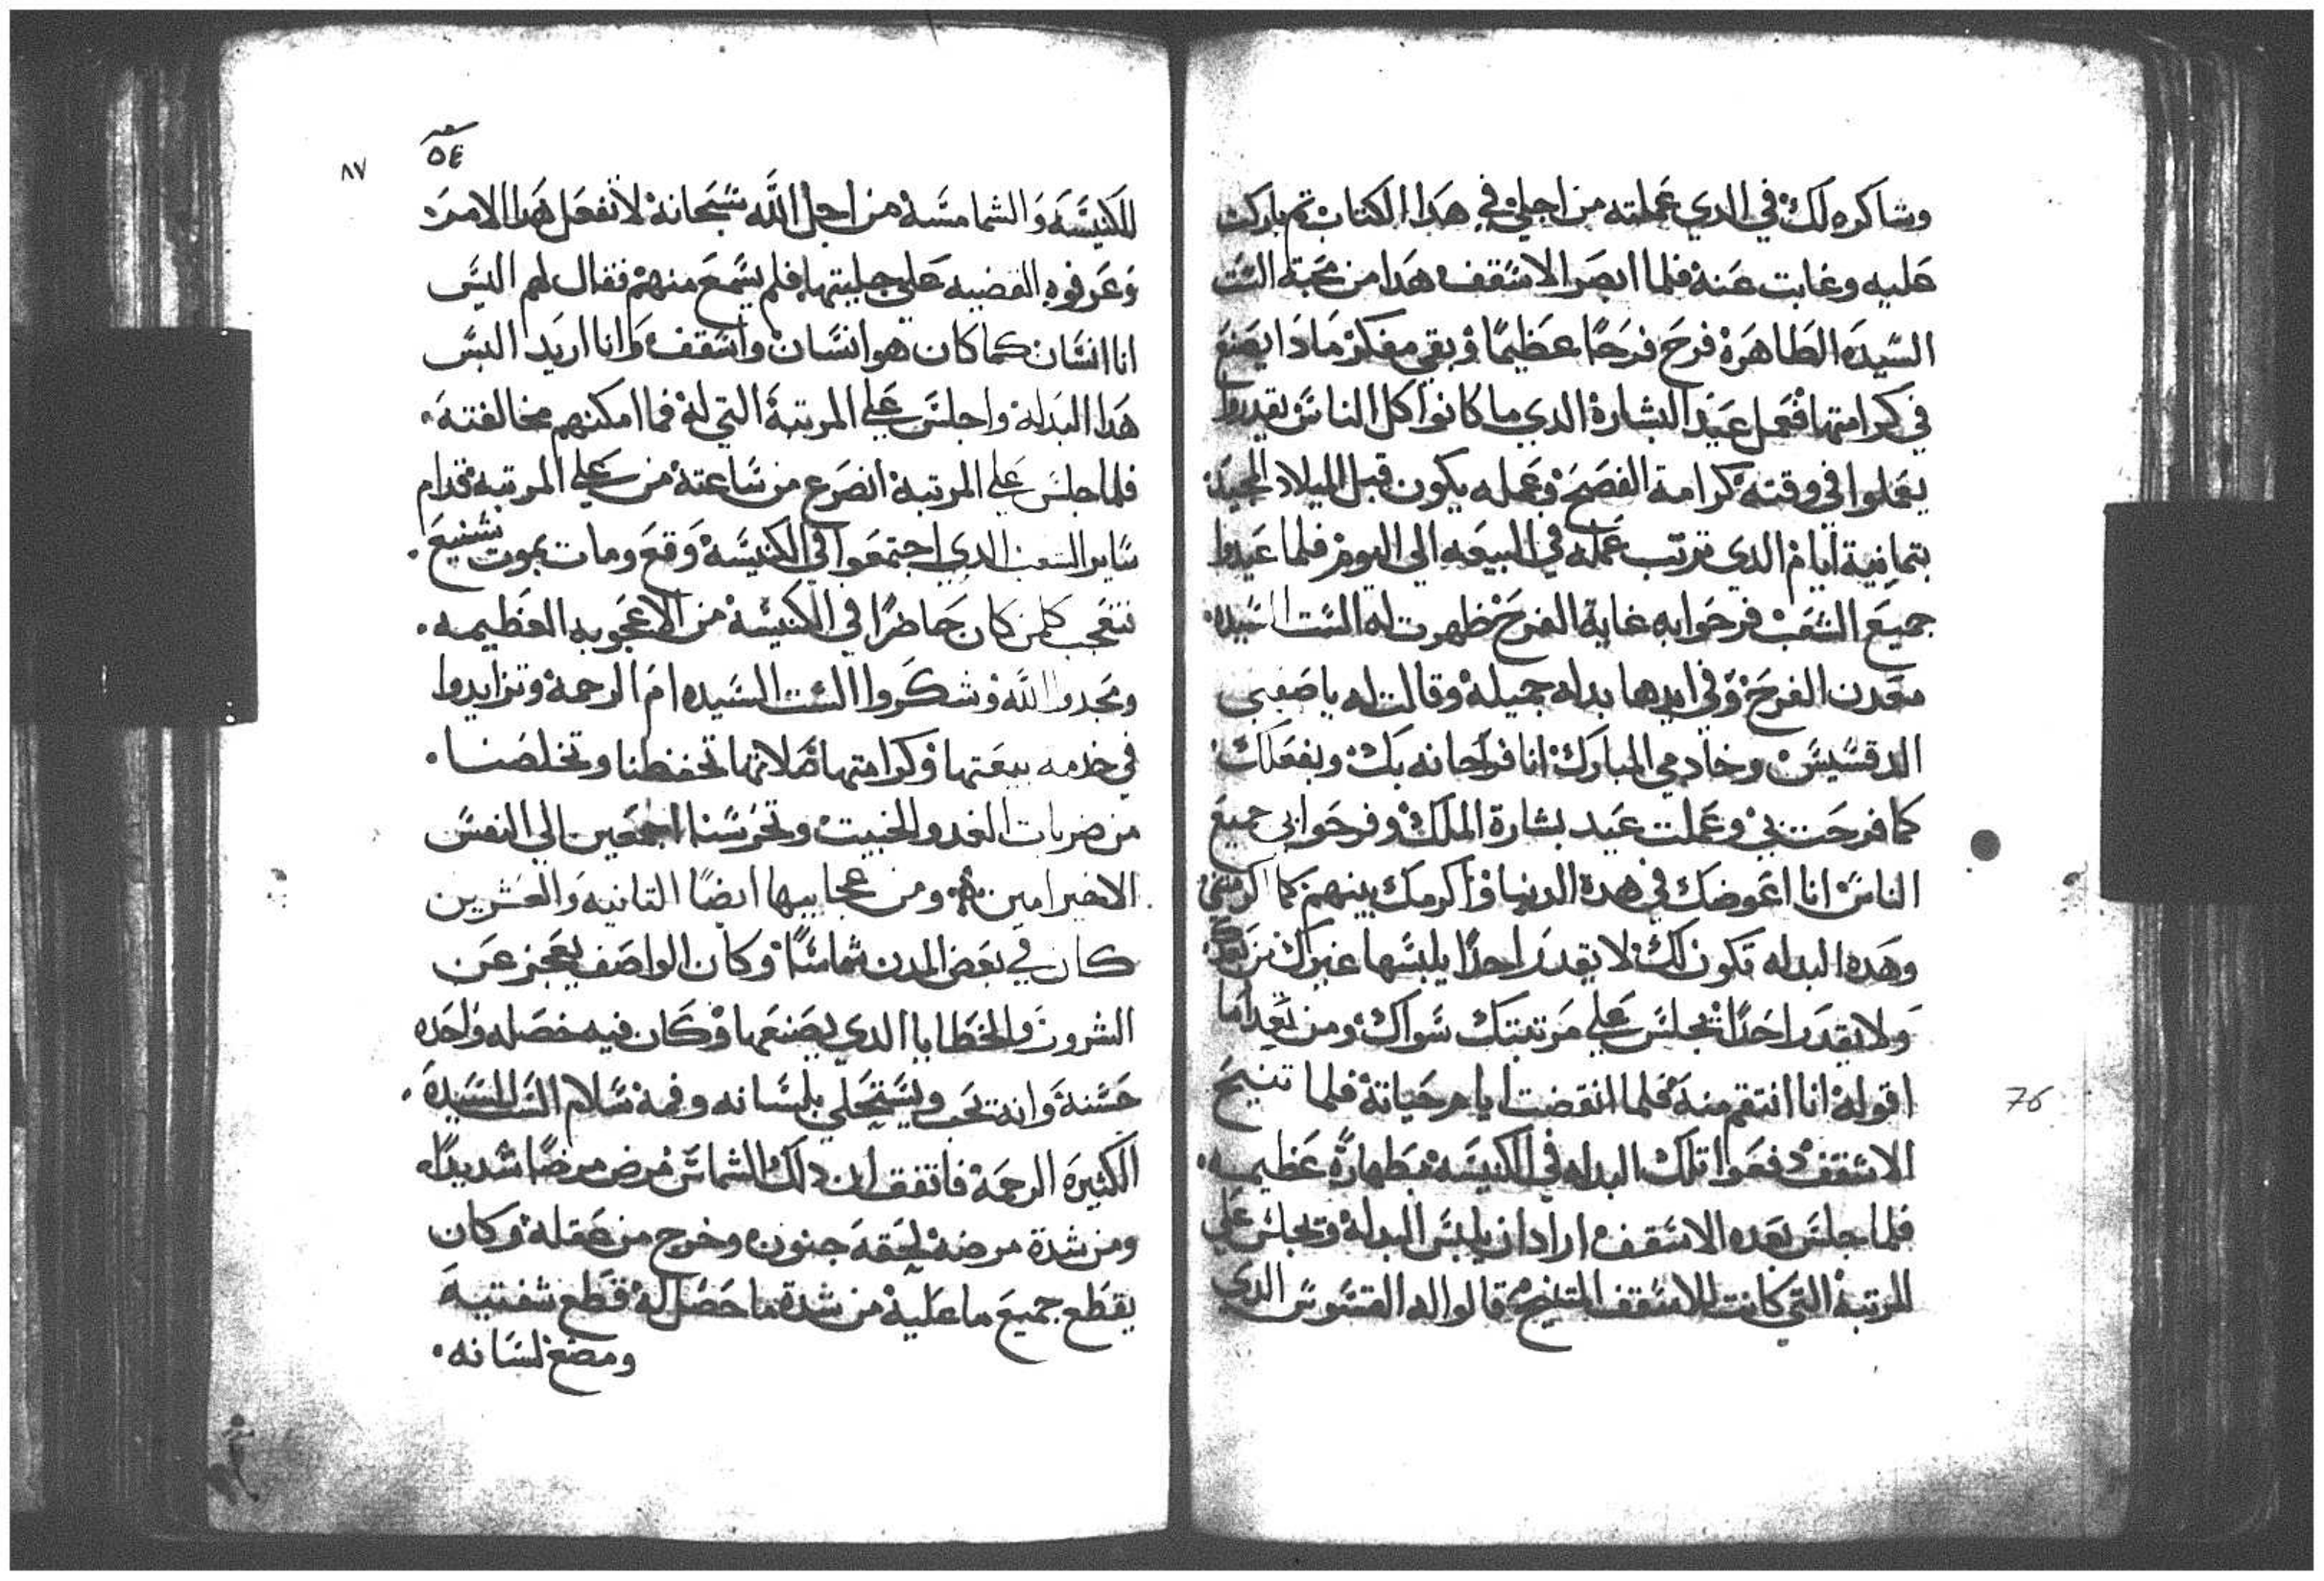 وشاكره لك في الدي عملته من اجلي في هدا الكتاب تم باركت
عليه وغابت عنه فلما ابصر الاسقف هدا من محبة الست
السيده الطاهرة فرح فرحًا عظيمًا وبقي مفكر مادا يصنع
في كرامتها فعمل عيد البشارة الدي ما كانوا كل الناس يقدروا
يعملوا في وقته كرامة الفصح وعمله يكون قبل الميلاد المجيد
بتمانية ايام الدي ترتب عمله في البيعه الي اليوم فلما عيدوا
جميع الشعب فرحوا به غاية الفرح ظهرت له الست السيده
معدن الفرح وفي ايدها بداه جميلة وقالت له يا صفيي
الدقسيس وخادمي المبارك انا فراحانه بك وبفعلك
كما فرحت بي وعملت عيد بشارة الملك وفرحوا بي جميع
الناس انا اعوضك في هدة الدنيا واكرمك بينهم كما اكرمتني
وهده البداه تكون لك لا يقدر احدًا يلبسها غيرك من بعدك
ولا يقدر احدًا يجلس علي مرتبتك سواك ومن بعد اما
اقوله انا انتقم منه فلما انقضت ايام حياتة فلما تنيح
الاسقف دفعوا تلك البداه في الكنيسه بطهارة عظيمه
فلما جلس بعده الاسقف اراد ان يلبس البدلة ويجلس علي
المرتبة التي كانت للاسقف المتنيح قالوا له القسوس الدي
76
٥٤
٨٧
للكنيسه والشمامسة من اجل الله سبحانة لا تفعل هدا الامر
وعرفوه القضيه علي جليتها فلم يسمع منهم فقال لهم اليس
انا انسان كما كان هو انسان واسقف وانا اريد البس
هدا البدله واجلس علي المرتبة التي له فما امكنهم مخالفته
فلما جلس علي المرتبة انصرع من ساعتة من علي المرتبة قدام
ساير الشعب الدي اجتمعوا في الكنيسة وقع ومات بموت شنيع
فتعجب كلمن كان حاضرًا في الكنيسة من الاعجوبه العظيمه
ومجدوا الله وشكروا الست السيده ام الرحمة وتزايدوا
في خدمه بيعتها وكرامتها صلاتها تحفظنا وتخلصنا
من ضربات العدو الخبيت وتحرسنا اجمعين الي النفس
الاخير امين ومن عجايبها ايضًا التانيه والعشرين
كان في بعض المدن شماسًا وكان الواصف يعجز عن
الشرور والخطايا الدي يصنعها وكان فيه خصله واحده
حسنة وانه تحب ويستحلي بلسانه وفمة سلام الست السيدة
الكثيرة الرحمة فاتفق ان دلك الشماس مرض مرضًا شديدًا
ومن شدة مرضة لحقه جنون وخرج من عقلة وكان
يقطع جميع ما علية من شدة ما حصل لة قطع شفتيه
ومضغ لسانه